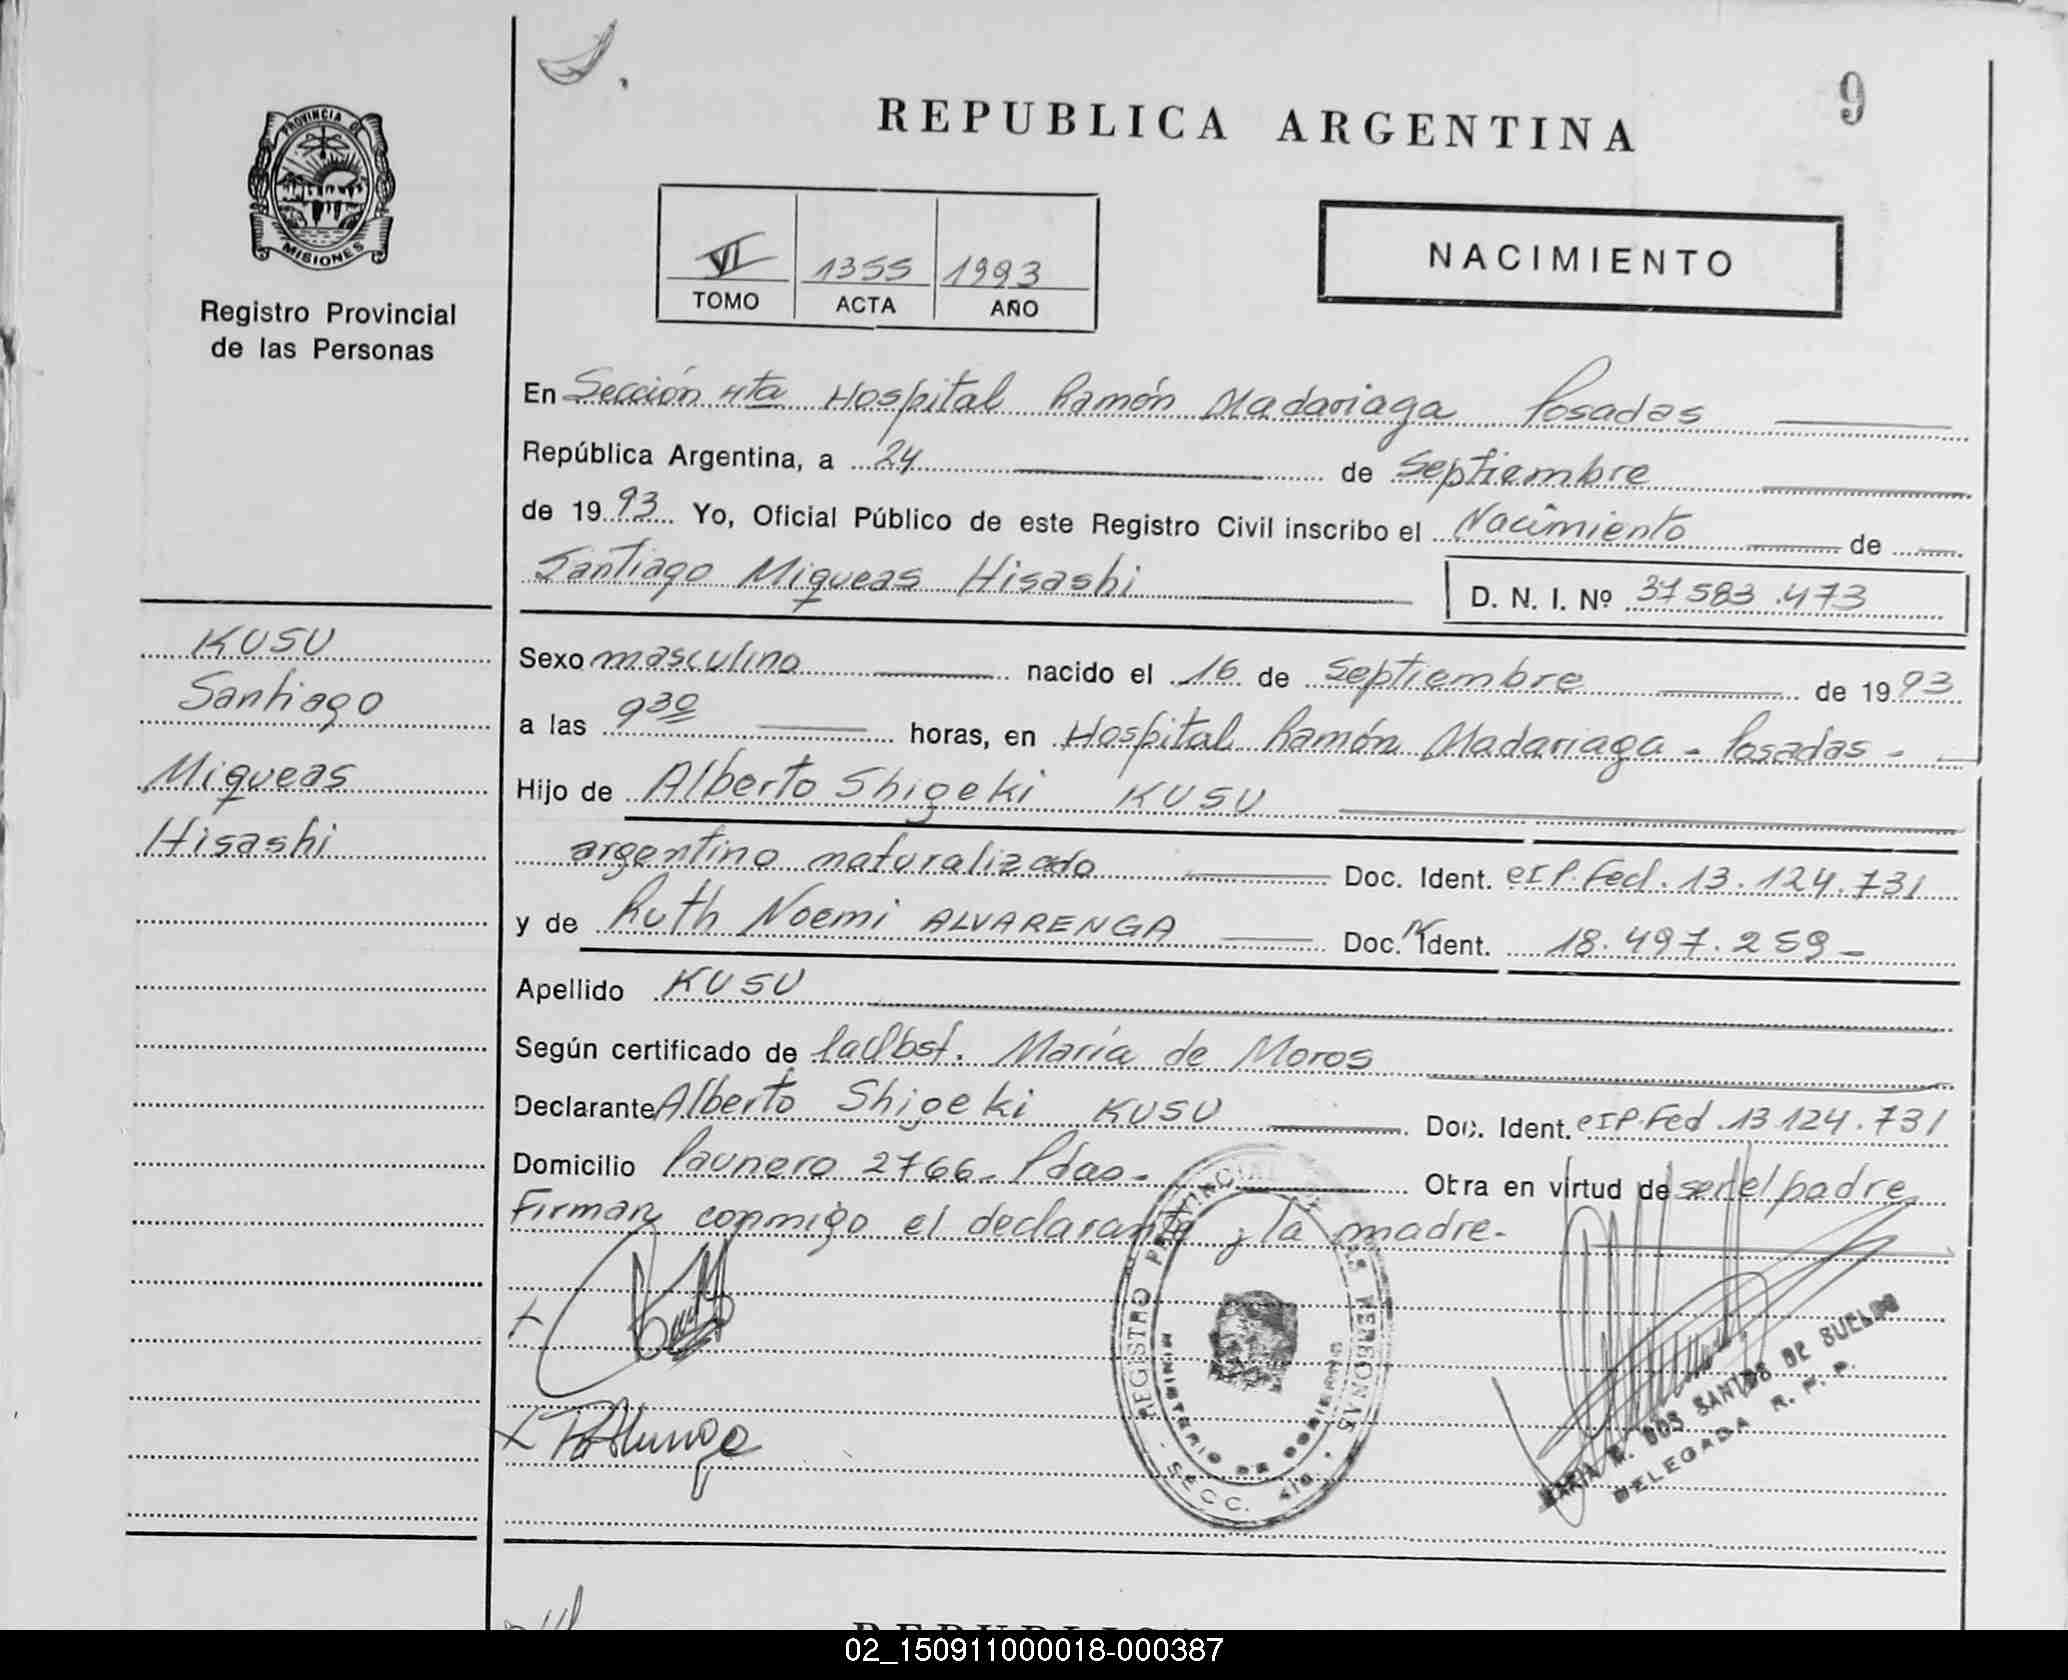 9
REPUBLICA ARGENTINA
PROVINCIA DE
MISIONES
Registro Provincial
de las Personas
VI 1355 1993
TOMO ACTA AÑO
NACIMIENTO
En Sección 4ta Hospital Ramón Madariaga Posadas
República Argentina, a 24 de Septiembre
de 1993 Yo, Oficial Público de este Registro Civil inscribo el Nacimiento de
Santiago Miqueas Hisashi D. N. I. Nº 37583.473
KUSU
Santiago
Miqueas
Hisashi
Sexo masculino nacido el 16 de Septiembre de 1993
a las 9 30 horas, en Hospital Ramón Madariaga - Posadas -
Hijo de Alberto Shigeki KUSU
argentino naturalizado Doc. Ident. eIP.Fed. 13.124.731
y de Ruth Noemi ALVARENGA Doc. Ident. 18.497.259-
Apellido KUSU
Según certificado de María de Moros
Declarante Alberto Shigeki KUSU Doc. Ident. eIP.Fed. 13 124.731
Domicilio Paunero 2766- Pdas- Otra en virtud de ser el padre
Firman conmigo el declarante y la madre.
REGISTRO PROVINCIAL DE LAS PERSONAS
MINISTERIO DE GOBIERNO
SECC. 4ta.
MARIA R. DOS SANTOS DE SUELDO
DELEGADA R. P. P.
REPUBLICA
02_150911000018-000387